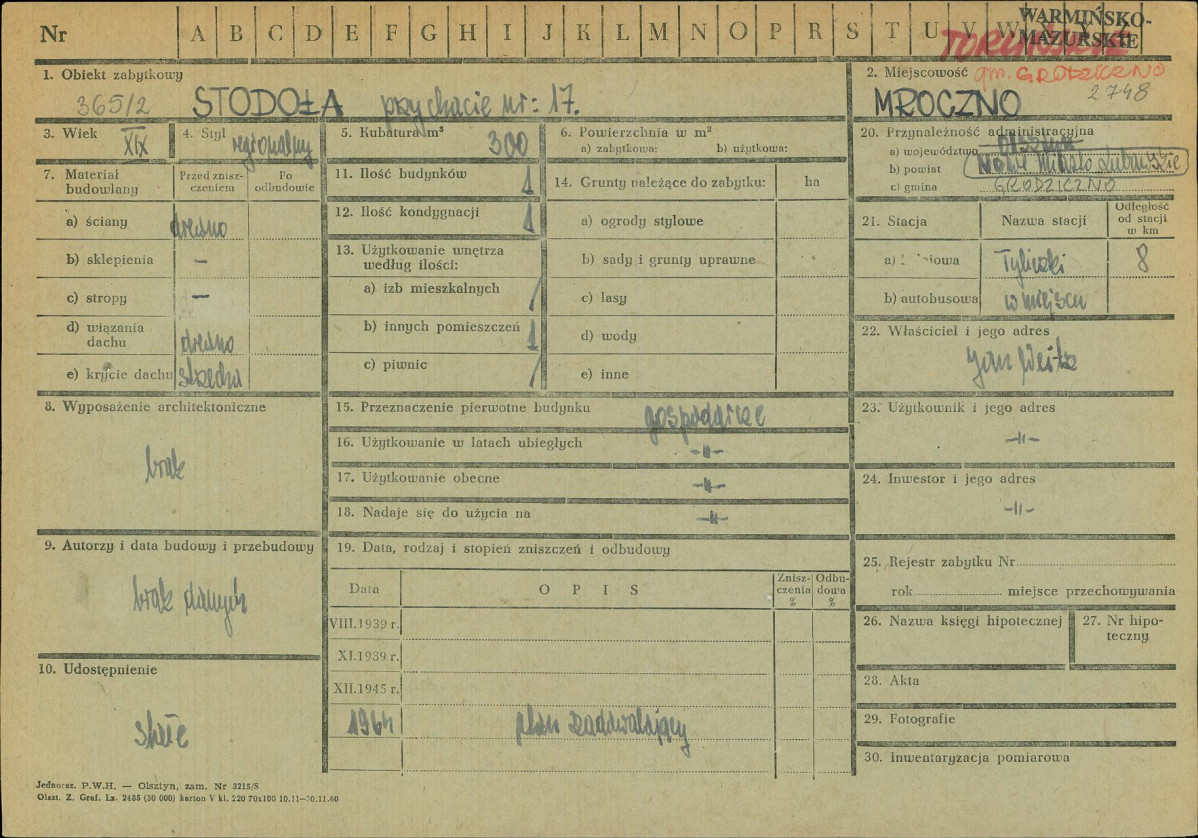 Nr A B C D E F G H I J K L M N O P R S T U V W
WARMIŃSKO-
MAZURSKIE
1. Obiekt zabytkowy
365/2 STODOŁA przy chacie nr: 17.
2. Miejscowość gm. GRODZICZNO
MROCZNO 2748
3. Wiek XIX
4. Styl regionalny
5. Kubatura m³ 300
6. Powierzchnia w m²
a) zabytkowa: b) użytkowa:
20. Przynależność administracyjna
a) województwo
b) powiat Nowe Miasto Lubawskie
c) gmina GRODZICZNO
7. Materiał budowlany
Przed zniszczeniem
Po odbudowie
a) ściany drewno
b) sklepienia –
c) stropy –
d) wiązania dachu drewno
e) krycie dachu strzecha
11. Ilość budynków 1
12. Ilość kondygnacji 1
13. Użytkowanie wnętrza
według ilości:
a) izb mieszkalnych /
b) innych pomieszczeń 1
c) piwnic /
14. Grunty należące do zabytku: ha
a) ogrody stylowe
b) sady i grunty uprawne
c) lasy
d) wody
e) inne
21. Stacja
Nazwa stacji
Odległość
od stacji
w km
a) 8
b) autobusowa w miejscu
22. Właściciel i jego adres
Jan
8. Wyposażenie architektoniczne
brak
15. Przeznaczenie pierwotne budynku gospodarcze
16. Użytkowanie w latach ubiegłych -||-
17. Użytkowanie obecne -||-
18. Nadaje się do użycia na -||-
23. Użytkownik i jego adres
-||-
24. Inwestor i jego adres
-||-
9. Autorzy i data budowy i przebudowy
brak danych
19. Data, rodzaj i stopień zniszczeń i odbudowy
Data OPIS
Zniszczenia
%
Odbudowa
%
VIII.1939 r.
XI.1939 r.
XII.1945 r.
1964 zadawalający
25. Rejestr zabytku Nr
rok miejsce przechowywania
26. Nazwa księgi hipotecznej
27. Nr hipoteczny
10. Udostępnienie
stałe
28. Akta
29. Fotografie
30. Inwentaryzacja pomiarowa
Jednoraz. P.W.H. — Olsztyn, zam. Nr 3215/S
Olszt. Z. Graf. Lz. 2485 (30 000) karton V kl. 220 70x100